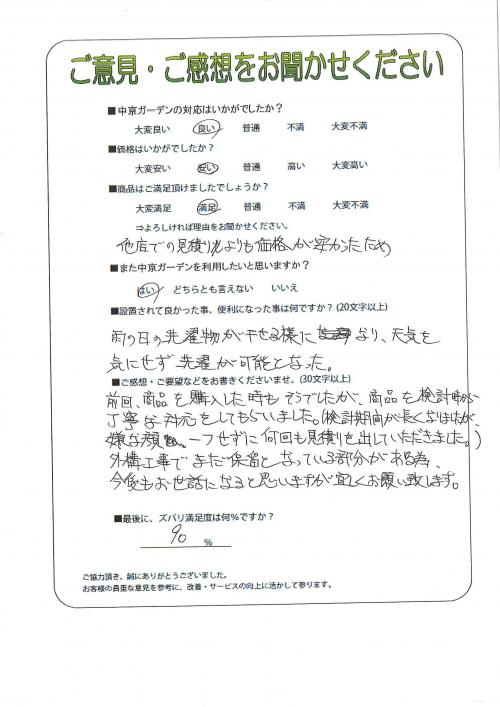 ご意見・ご感想をお聞かせください
■中京ガーデンの対応はいかがでしたか？
大変良い 良い 普通 不満 大変不満
■価格はいかがでしたか？
大変安い 安い 普通 高い 大変高い
■商品はご満足頂けましたでしょうか？
大変満足 満足 普通 不満 大変不満
⇒よろしければ理由をお聞かせください。
他店での見積りよりも価格が安かったため
■また中京ガーデンを利用したいと思いますか？
はい どちらとも言えない いいえ
■設置されて良かった事、便利になった事は何ですか？(20文字以上)
雨の日の洗濯物が干せる様に より、天気を
気にせず洗濯が可能となった。
■ご感想・ご要望などをお書きくださいませ。(30文字以上)
前回、商品を購入した時もそうでしたが、商品を検討時から
丁寧な対応をしてもらいました。(検討期間が長くなりましたが、
嫌な顔一つせずに何回も見積りを出していただきました。)
外構工事でまだ保留となっている部分がある為、
今後もお世話になると思いますが宜しくお願い致します。
■最後に、ズバリ満足度は何％ですか？
90 ％
ご協力頂き、誠にありがとうございました。
お客様の貴重な意見を参考に、改善・サービスの向上に活かして参ります。